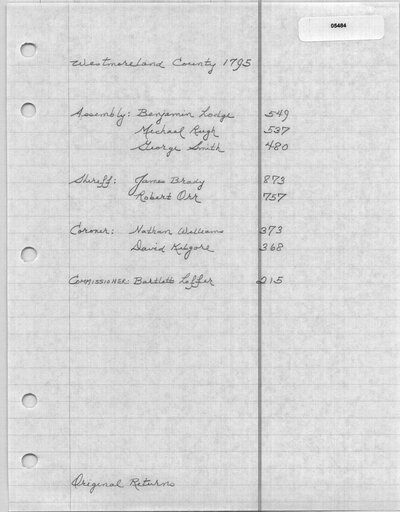 05484
Westmoreland County 1795
Assembly: Benjamin Lodge 549
Michael Rugh 537
George Smith 480
Sheriff: James Brady 873
Robert Orr 757
Coroner: Nathan Williams 373
David Kilgore 368
Commissioner: Bartlett Leffer 215
Original Returns